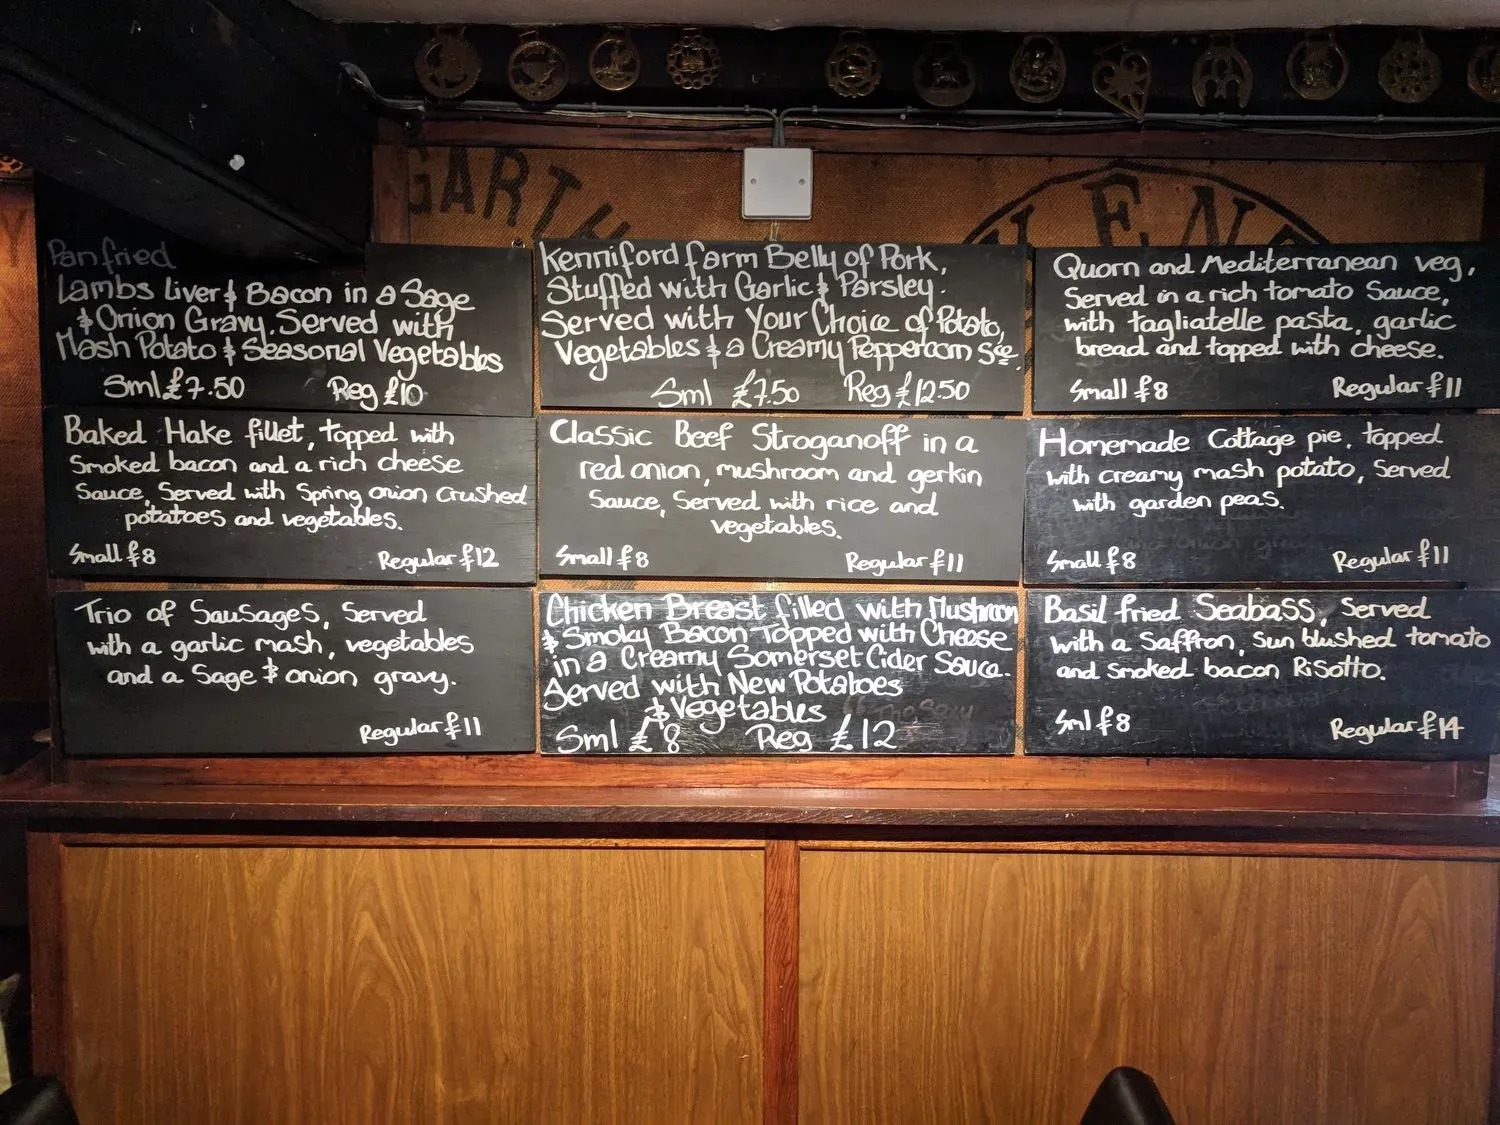 GARTH
LEN
Panfried
Lambs Liver & Bacon in a Sage
& Onion Gravy. Served with
Mash Potato & Seasonal Vegetables
Sml £7.50 Reg £10
Kenniford farm Belly of Pork,
Stuffed with Garlic & Parsley.
Served with Your Choice of Potato,
Vegetables & a Creamy Peppercorn Sce.
Sml £7.50 Reg £12.50
Quorn and Mediterranean veg,
Served in a rich tomato Sauce,
with tagliatelle pasta, garlic
bread and topped with cheese.
Small £8 Regular £11
Baked Hake fillet, topped with
Smoked bacon and a rich cheese
Sauce, Served with Spring onion Crushed
potatoes and vegetables.
Small £8 Regular £12
Classic Beef Stroganoff in a
red onion, mushroom and gerkin
Sauce, Served with rice and
vegetables.
Small £8 Regular £11
Homemade Cottage pie, topped
with creamy mash potato, Served
with garden peas.
Small £8 Regular £11
Trio of Sausages, Served
with a garlic mash, vegetables
and a Sage & onion gravy.
Regular £11
Chicken Breast filled with Mushroom
& Smoky Bacon Topped with Cheese
in a Creamy Somerset Cider Sauce.
Served with New Potatoes
& Vegetables
Sml £8 Reg £12
Basil fried Seabass, Served
with a Saffron, Sun blushed tomato
and smoked bacon Risotto.
Sml £8 Regular £14